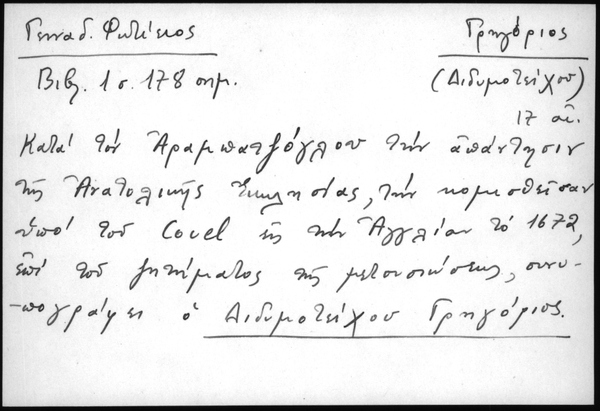 Γενναδ. Φωτίειος
Γρηγόριος
Βιβλ. 1 σ. 178 σημ.
(Διδυμοτείχου)
17 αἰ.
Κατά τόν Ἀραμπατζόγλου τήν ἀπάντησιν
τῆς Ἀνατολικῆς Ἐκκλησίας, τήν κομισθεῖσαν
ὑπό τοῦ Covel εἰς τήν Ἀγγλίαν τό 1672,
ἐπί τοῦ ζητήματος τῆς μετουσιώσεως, συνυ-
-πογράφει ὁ Διδυμοτείχου Γρηγόριος.